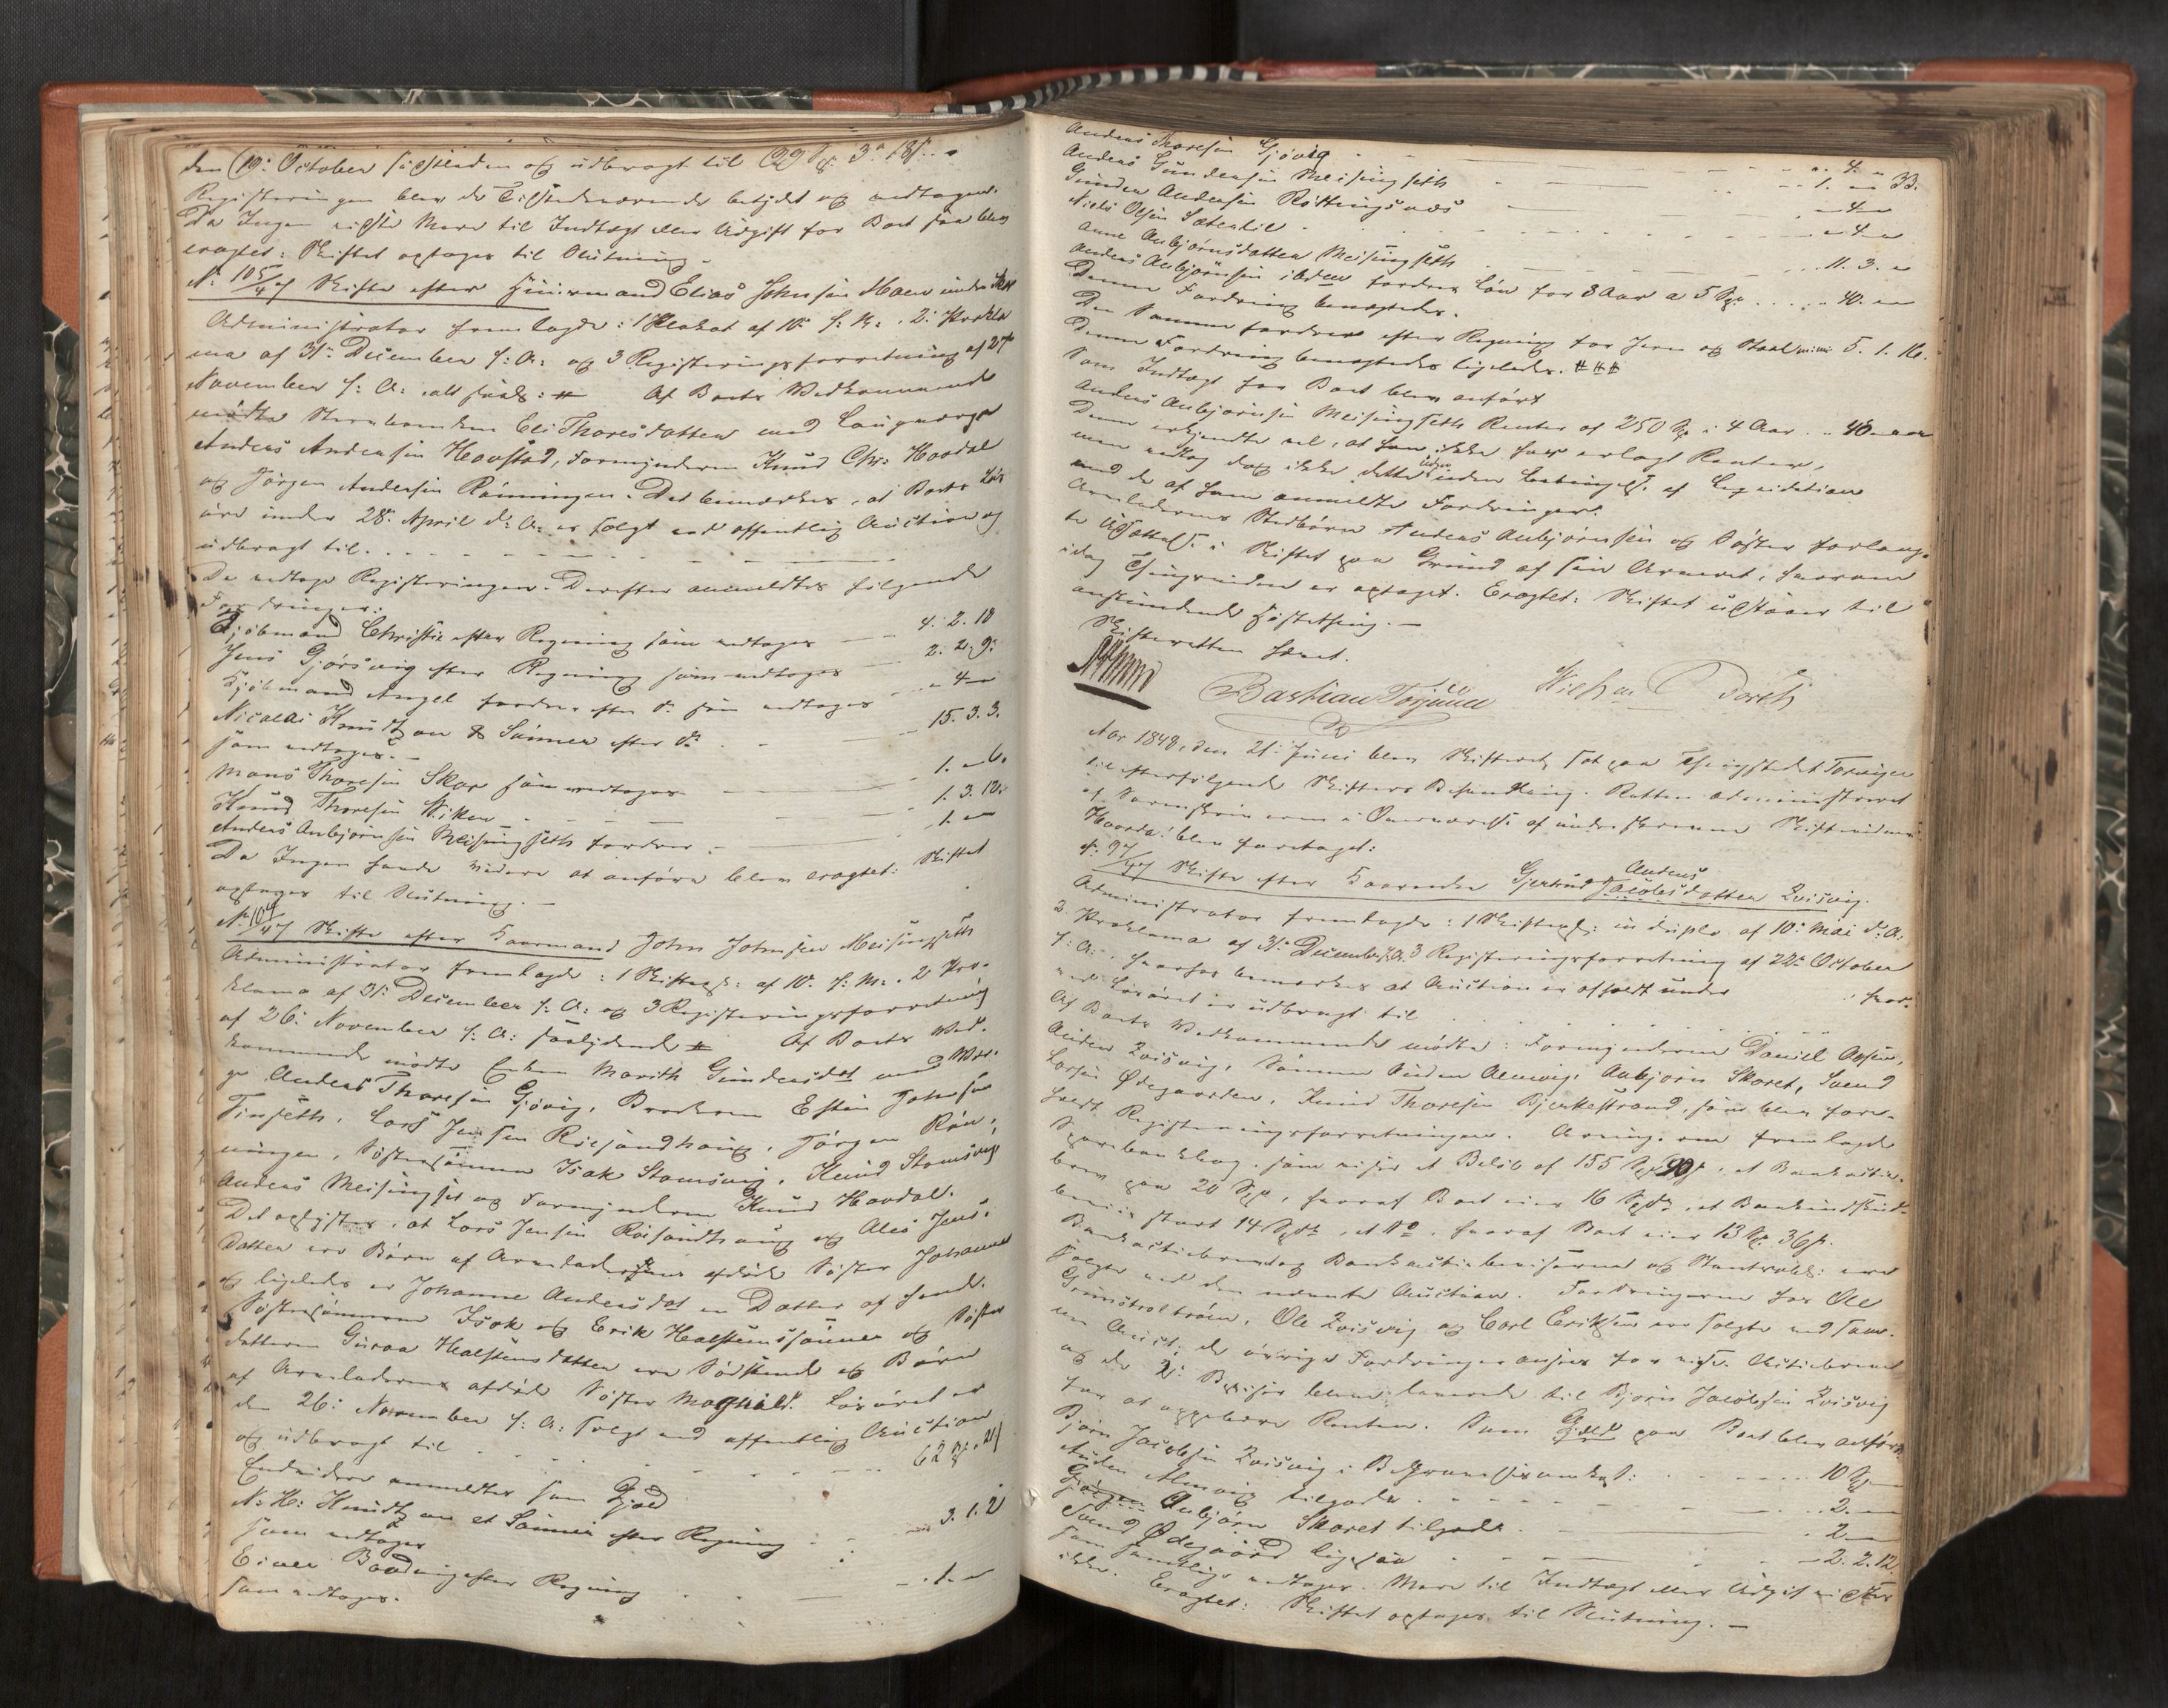 den 19: October sidstleden og udbragt til 29 3 18
Registeringen blev de Tilstedeværende betydet og vedtagen.
Da Ingen vidste Mere til Indtægt eller Udgift for Boet saa blev
eragtet: Skiftet optages til Slutning. –
No 105/47 Skifte efter Huusmand Elias Johnsen Moen under
Administrator fremlagde: 1 Plakat af 10: f: M:, 2: Prokla
ma af 31: December f: A: og 3 Registeringsforretning af 27
November f: A: alt saal: # Af Boets Vedkommende
mødte Stervboenken Eli Thoresdatter med Laugværge
Anders Andersen Hevstad, Formynderen Knud Chr: Hovdal
og Jørgen Andersen Rønningen. Det bemærkes, at Boets Løs
øre under 28: April d: A: er solgt ved offentlig Auction og
udbragt til . . . . . . . .
De vedtoge Registeringen. Derefter anmeldtes følgende
Fordringer:
Kjøbmand Christie efter Regning som vedtages — 4. 2. 18
Jens Gjørsvig efter Regning som vedtages — 2. 2. 9.
Kjøbmand Angel fordrer efter do som vedtages - „ 4 „
Nicolai Knudtzon & Sønner efter do . - 15. 3. 3.
som vedtages. –
Mons Thoresen Skar som vedtages — 1. „ 6.
Knud Thoresen Viken — 1. 3. 12.
Anders Anbjørnsen Meisingseth fordrer — 1. „ „
Da Ingen havde videre at anføre blev eragtet: Skiftet
optages til Slutning. –
No 104/47 Skifte efter Kaarmand John Johnsen Meisingseth
Administrator fremlagde: 1 af 10: f: M:, 2 Pro-
klama af 31: December f: A: og 3 Registeringsforretning
af 26: November f: A: saalydende # Af Boets Ved-
kommende mødte Enken Marith Gundersdat med Vær-
ge Anders Thoresen Gjøvig, Broderen Esten Johnsen
Tinseth, Lars Jensen Roesandhoug, Jørgen Røn-
ningen, Søstersønnen Isak Stomsvig, Knud Stomsvig
Anders Meisingset og Formynderen Knud Hovdal.
Det oplystes, at Lars Jensen Roesandhoug og Ales Jens-
datter ere Børn af Arveladerens afdøde Søster Johanna
og ligeledes er Johanne Andersdat en Datter af hende.
Søstersønnerne Isak og Erik Halstensønner og Søster
datteren Guroa Halstensdatter ere Sødskende og Børn
af Arveladerens afdøde Søster Magnild. Løsøret er
den 26: November f: A: solgt ved offentlig Auction
og udbragt til . . . . . . 62 „ 21
Endvidere anmeldtes som Gjæld
N: H: Knudtzon et Sønner efter Regning - 3. 1. 2
som vedtages
Einer Bæverfjord efter Regning - 1. „
som vedtages.
Anders Thoresen Gjøvig - „ 4. „ 33.
Anders Gundersen Meisingseth - 1. „ „
Gunder Andersen Røttingsnæs — „ 4 „
Niels Olsen Sæterlil — „ 4 „
Anne Anbjørnsdatter Meisingseth . . . . 11. 3. „
Anders Anbjørnsen ibdem fordrer Løn for 8 Aar a 5 . . . . . 40. „
Denne Fordring benegtedes.
Den Samme fordrer efter Regning for Jern og Staal 5. 1. 16.
Denne Fordring benegtedes ligeledes. ###
Som Indtægt for Boet blev anført
Anders Anbjørnsen Meisingseth Renter af 250 i 4 Aar . . 40 „ „
Denne erkjendte vel, at han ikke har erlagt Renter,
men vedtog dog ikke dette uden Betingelse af Liqvidation
med de af ham anmeldte Fordringer.
Arveladerens Stedbørn Anders Anbjørnsen og Søster forlang-
te Udsættelse i Skiftet paa Grund af sin Arveret, hvorom
idag er optaget. Eragtet: Skiftet udstaaer til
anstundende Høstething. –
Skifteretten hævet.
Bastian Wilh m
Aar 1848, den 21: Juni blev Skifteret sat paa Thingstedet Torvigen
til efterfølgende Skifters Behandling. Retten administreret
af Sorenskriveren i Overværelse af underskrevne Skiftevidner
Hvorda blev foretaget:
No 97/47 Skifte efter Kaarenke Gjertrud Anders Jacobsdatter Qvisvig.
Administrator fremlagde: 1 in duplo af 10: Mai d: A:
2. Proklama af 31: December f. A. 3 Registeringsforretning af 22: October
f: A:, hvorhos bemærkes at Auction er afholdt under , hvor-
ved Løsøret er udbragt til . . . . . . .
Af Boets Vedkommende mødte: Formynderen Daniel Aasen,
Auden Qvisvig, Sønnen Auden Alnvig, Anbjørn Skaret, Svend
Larsen Ødegaarden, Knud Thoresen Bjerkestrand, som blev fore-
holdt Registeringsforretningen. Arving. fremlagde
Sparebanksbog, som viser et Beløb af 155 , et Bankactie-
brev paa 20 , hvoraf Boet eier 16 , et Bankindskuds-
beviis stort 14 , et do, hvoraf Boet eier 13 36
Bankactiebrevet og Bankactiebeviserne og ere
solgte ved den nævnte Auction. Fordringerne hos Ole
Grønset, Ole Qvisvig og Carl Eriksen ere solgte ved sam-
me Auct; de øvrige Fordringer ansees for visse. Actiebrevet
og de 2: Beviser bleve leverede til Bjørn Jacobsen Qvisvig
for at oppebære Renten. Som Gjæld paa Boet blev anført
Bjørn Jacobsen Qvisvig i Begravelsesomkost: . . . . 10
Auden Alnvig tilgode . . . . . . 2. „
Anbjørn Skaret tilgode . . . . 2 „
Svend Ødegaard ligesaa . . . . 2. 2. 12
som samtlige vedtages. Mere til Indtægt eller Udgift vidstes
ikke. Eragtet: Skiftet optages til Slutning. –